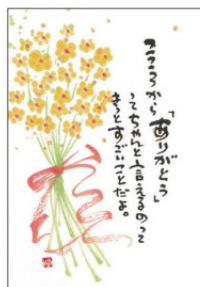 こころから「ありがとう」
ってちゃんと言えるのって
きっとすごいことだよ。